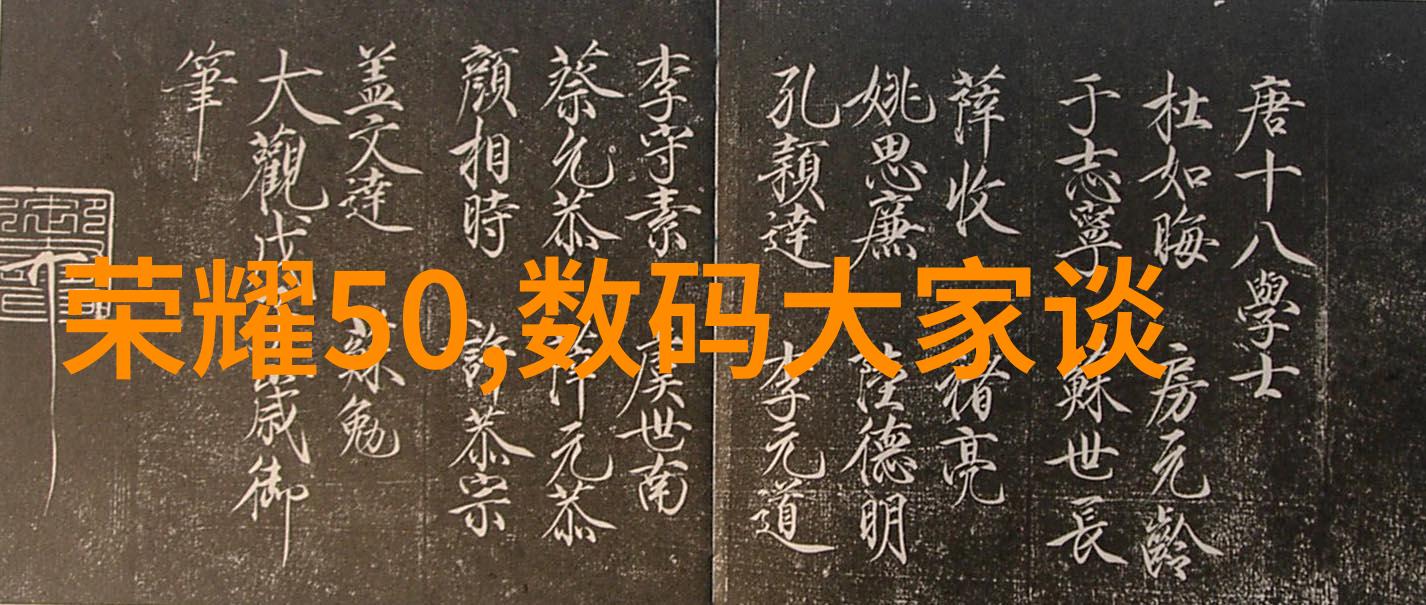 唐十八學士
杜如晦 房元齡
于志寧 蘇世長
薛收 褚亮
姚思廉 陸德明
孔穎達 李元道
李守素 虞世南
蔡允恭 薛元恭
顏相時 許恭宗
盖文達 蘇勉
大觀戊歲御
筆
荣耀50,数码大家谈